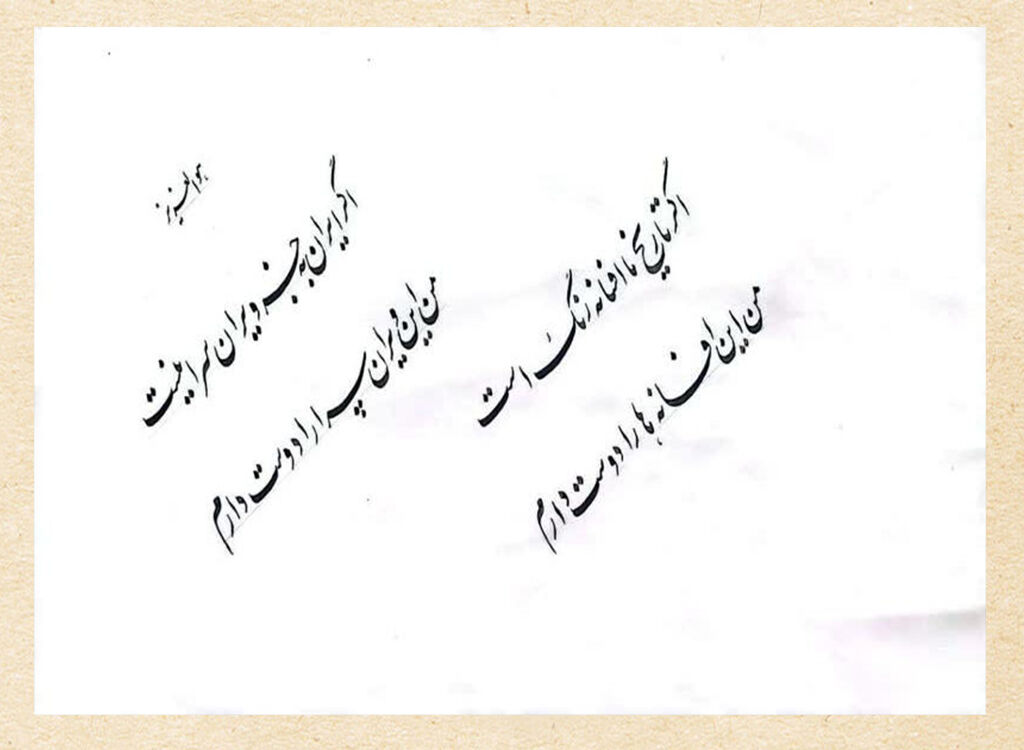 هوالعزیز
اگر ایران به جز ویران سرا نیست
من این ویران سرا را دوست دارم
اگر تاریخ ما افسانه رنگ است
من این افسانه ها را دوست دارم